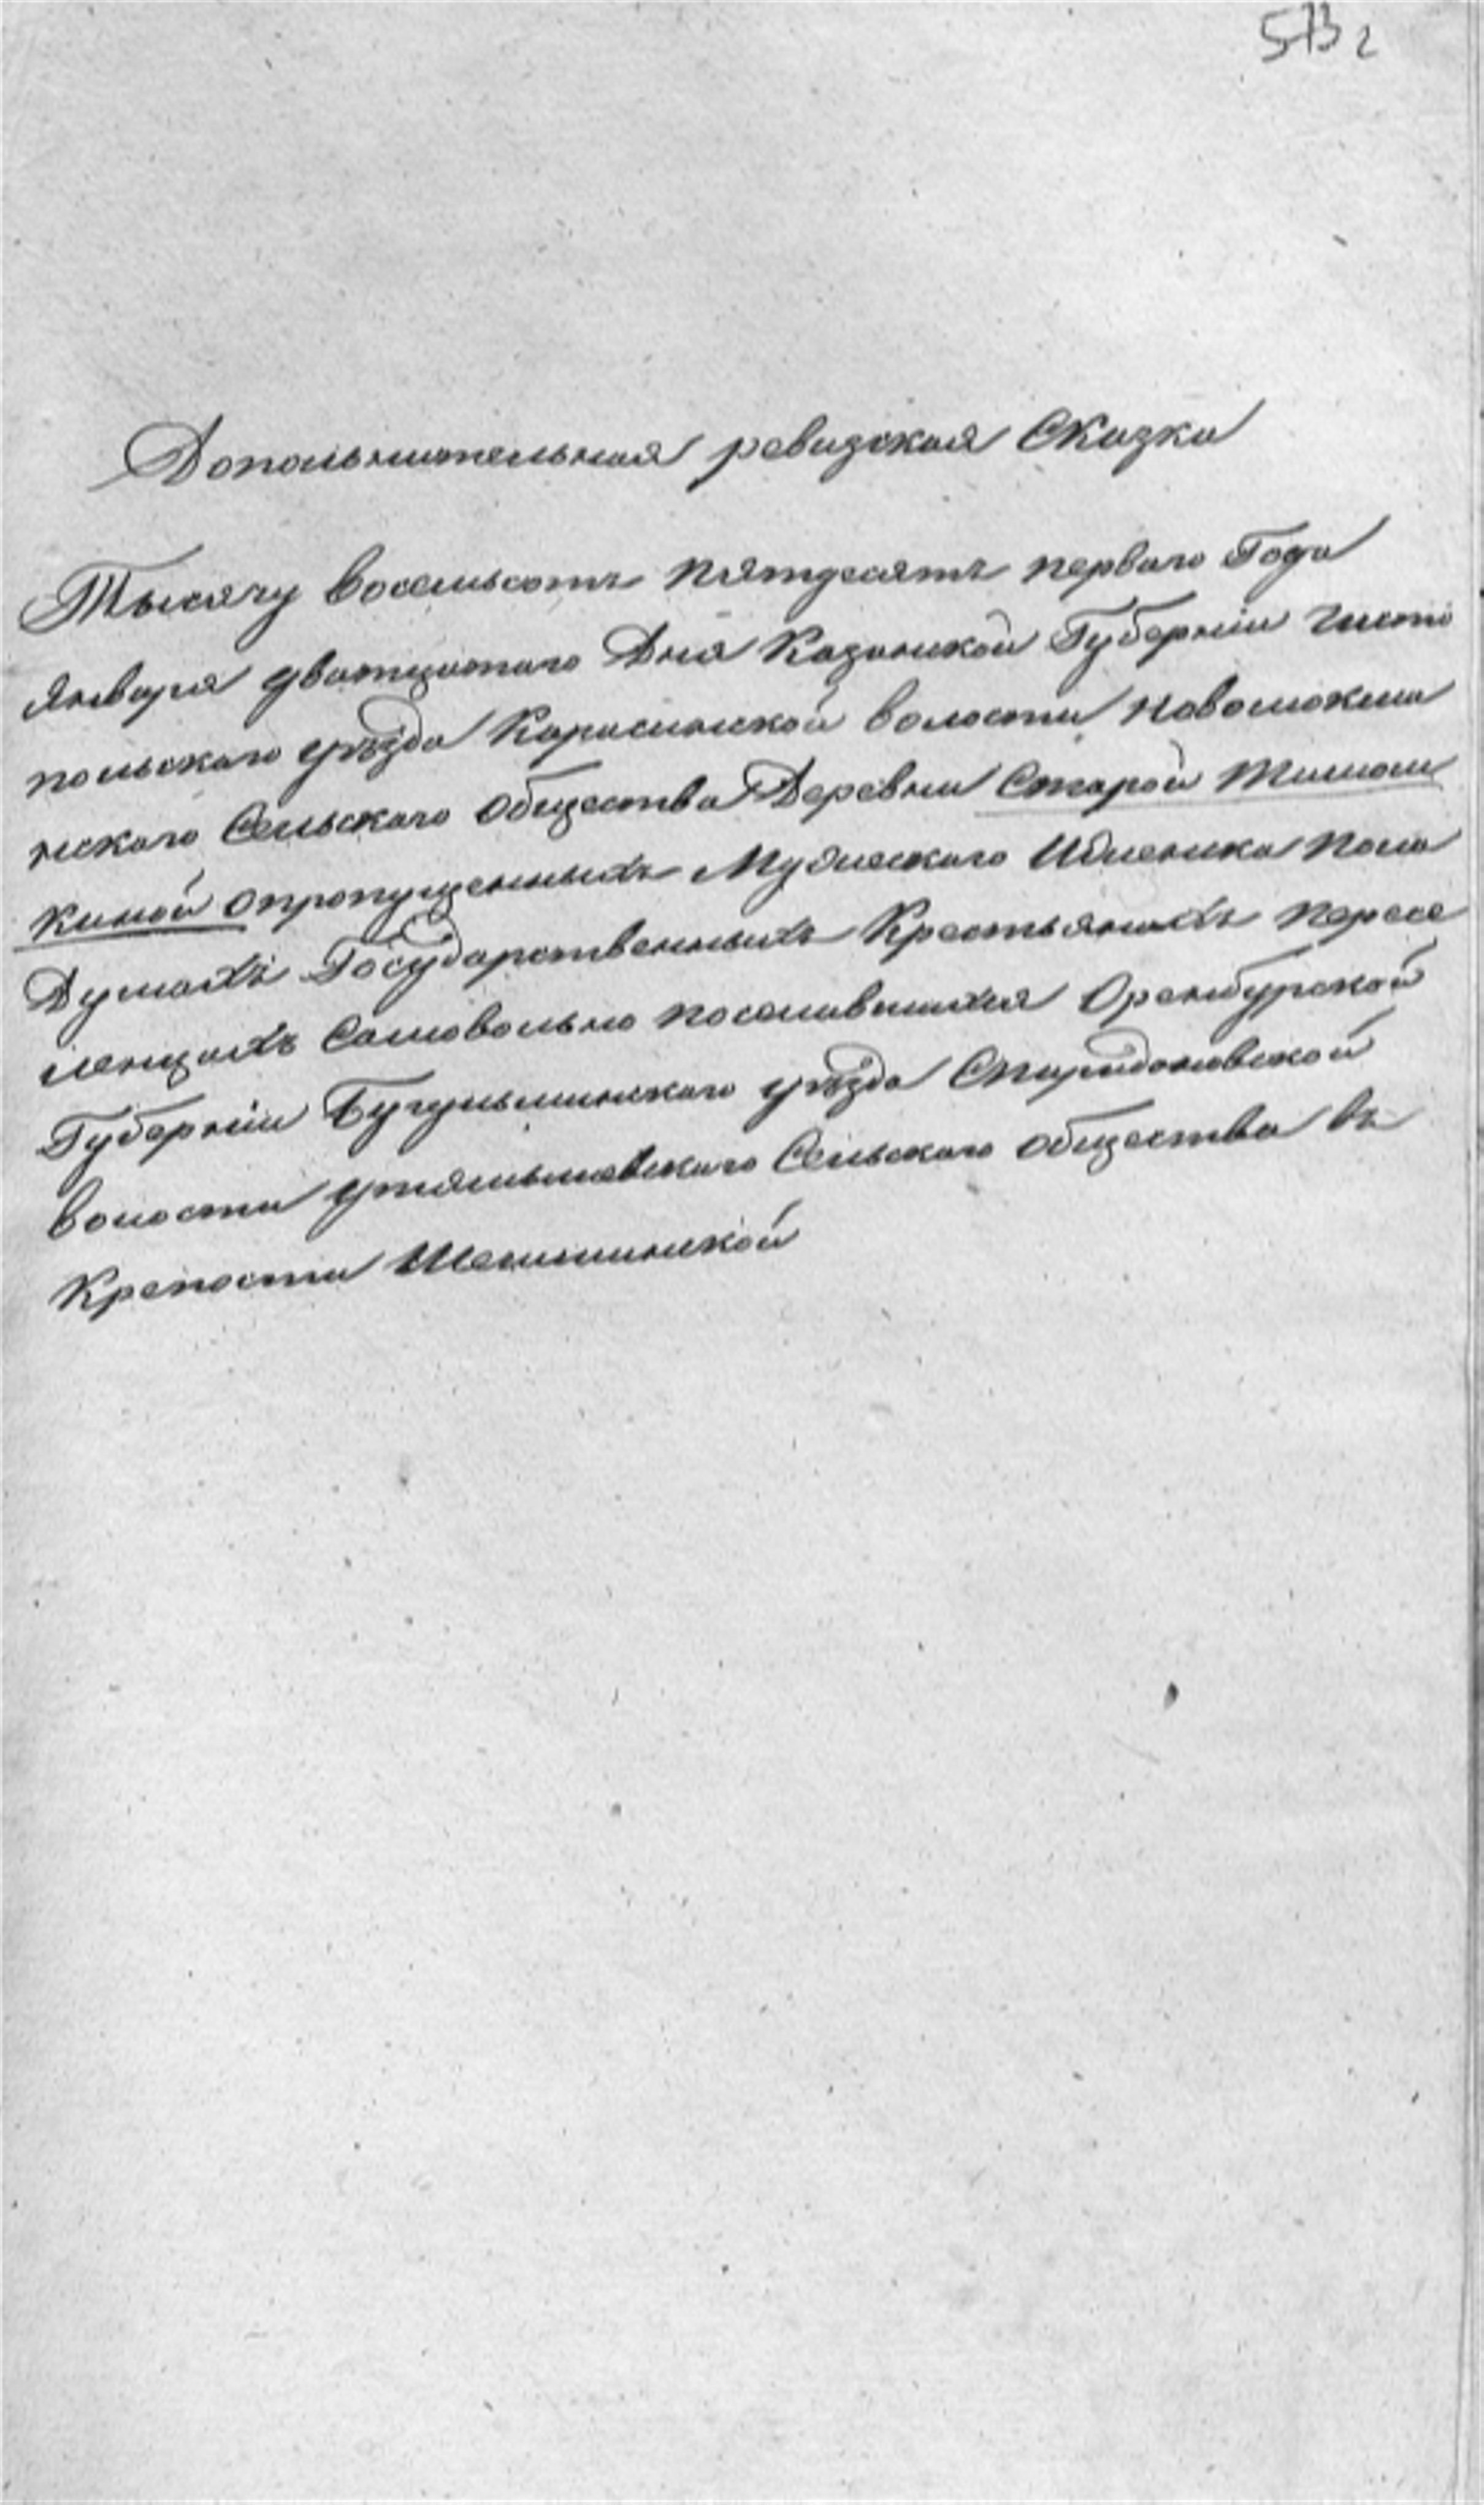 573 2
Дополънительная ревизская Сказка
Тысячу восемьсотъ пятдесятъ перваго Года
января дватцатаго Дня Казанской Губерніи чисто
польского уѣзда Кара волости Новомокши
нского Сельскаго общества Деревни Старой Тимош
киной опропущенныхъ Мужескаго И женска Пола
Душахъ Государственныхъ Крестьянахъ пересе
ленцахъ Самовольно поселившихся Оренбурской
Губерніи Бугульминскаго уѣзда Спиридоновской
волости утямышевскаго Сельскаго общества въ
Крепости Шешминской